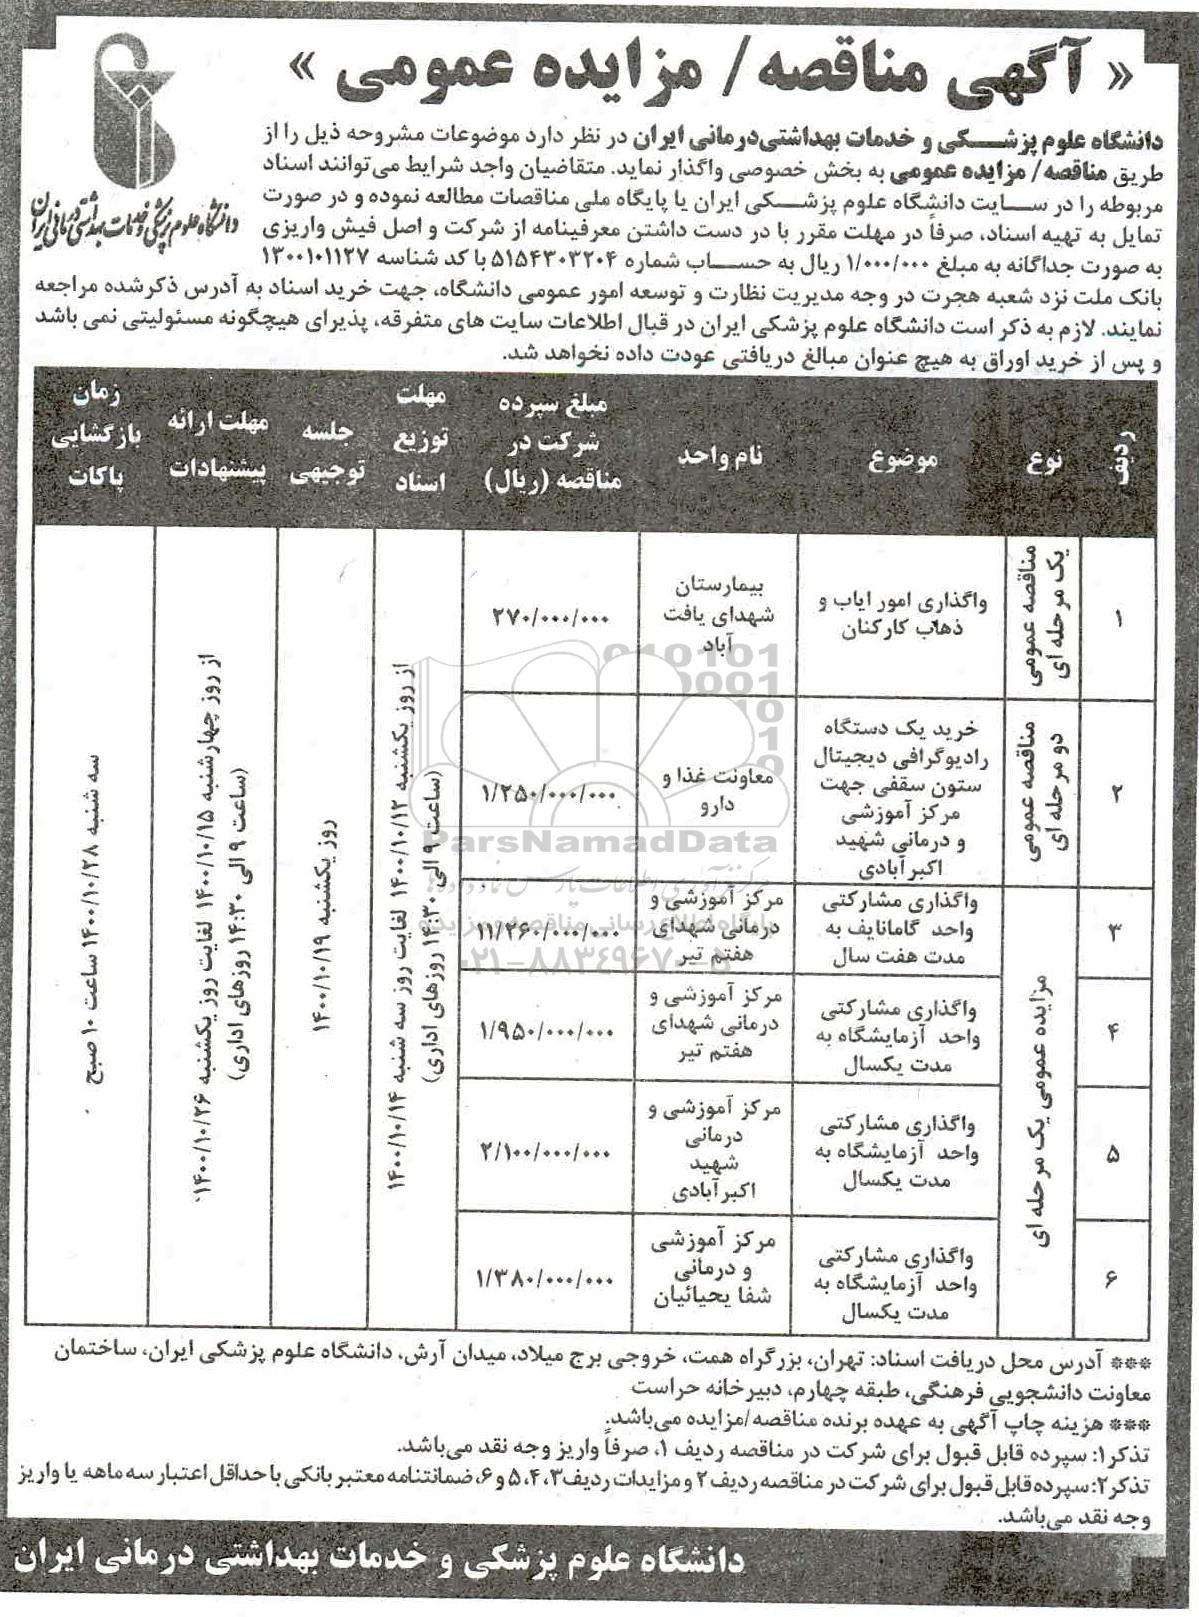 « آگهی مناقصه / مزایده عمومی »
دانشگاه علوم پزشکی و خدمات بهداشتی درمانی ایران
دانشگاه علوم پزشکی و خدمات بهداشتی‌درمانی ایران در نظر دارد موضوعات مشروحه ذیل را از
طریق مناقصه / مزایده عمومی به بخش خصوصی واگذار نماید. متقاضیان واجد شرایط می‌توانند اسناد
مربوطه را در سایت دانشگاه علوم پزشکی ایران یا پایگاه ملی مناقصات مطالعه نموده و در صورت
تمایل به تهیه اسناد، صرفاً در مهلت مقرر با در دست داشتن معرفینامه از شرکت و اصل فیش واریزی
به صورت جداگانه به مبلغ ۱/۰۰۰/۰۰۰ ریال به حساب شماره ۵۱۵۴۳۰۳۲۰۴ با کد شناسه ۱۳۰۰۱۰۱۱۲۷
بانک ملت نزد شعبه هجرت در وجه مدیریت نظارت و توسعه امور عمومی دانشگاه، جهت خرید اسناد به آدرس ذکرشده مراجعه
نمایند. لازم به ذکر است دانشگاه علوم پزشکی ایران در قبال اطلاعات سایت های متفرقه، پذیرای هیچگونه مسئولیتی نمی باشد
و پس از خرید اوراق به هیچ عنوان مبالغ دریافتی عودت داده نخواهد شد.
ردیف
نوع
موضوع
نام واحد
مبلغ سپرده
شرکت در
مناقصه (ریال)
مهلت
توزیع
اسناد
جلسه
توجیهی
مهلت ارائه
پیشنهادات
زمان
بازگشایی
پاکات
۱
مناقصه عمومی
یک مرحله ای
واگذاری امور ایاب و
ذهاب کارکنان
بیمارستان
شهدای یافت
آباد
۲۷۰/۰۰۰/۰۰۰
از روز یکشنبه ۱۴۰۰/۱۰/۱۲ لغایت روز سه شنبه ۱۴۰۰/۱۰/۱۴
(ساعت ۹ الی ۱۴:۳۰ روزهای اداری)
روز یکشنبه ۱۴۰۰/۱۰/۱۹
از روز چهارشنبه ۱۴۰۰/۱۰/۱۵ لغایت روز یکشنبه ۱۴۰۰/۱۰/۲۶
(ساعت ۹ الی ۱۴:۳۰ روزهای اداری)
سه شنبه ۱۴۰۰/۱۰/۲۸ ساعت ۱۰ صبح
۲
مناقصه عمومی
دو مرحله ای
خرید یک دستگاه
رادیوگرافی دیجیتال
ستون سقفی جهت
مرکز آموزشی
و درمانی شهید
اکبرآبادی
معاونت غذا و
دارو
۱/۲۵۰/۰۰۰/۰۰۰
مزایده عمومی یک مرحله ای
۳
واگذاری مشارکتی
واحد گامانایف به
مدت هفت سال
مرکز آموزشی و
درمانی شهدای
هفتم تیر
۱۱/۲۶۰/۰۰۰/۰۰۰
۴
واگذاری مشارکتی
واحد آزمایشگاه به
مدت یکسال
مرکز آموزشی و
درمانی شهدای
هفتم تیر
۱/۹۵۰/۰۰۰/۰۰۰
۵
واگذاری مشارکتی
واحد آزمایشگاه به
مدت یکسال
مرکز آموزشی و
درمانی
شهید
اکبرآبادی
۲/۱۰۰/۰۰۰/۰۰۰
۶
واگذاری مشارکتی
واحد آزمایشگاه به
مدت یکسال
مرکز آموزشی
و درمانی
شفا یحیائیان
۱/۳۸۰/۰۰۰/۰۰۰
ParsNamadData
مرکز فرآوری اطلاعات پارس نماد داده‌ها
پایگاه اطلاع رسانی مناقصه و مزایده
۰۲۱-۸۸۳۴۹۶۷۰-۵
*** آدرس محل دریافت اسناد: تهران، بزرگراه همت، خروجی برج میلاد، میدان آرش، دانشگاه علوم پزشکی ایران، ساختمان
معاونت دانشجویی فرهنگی، طبقه چهارم، دبیرخانه حراست
*** هزینه چاپ آگهی به عهده برنده مناقصه/مزایده می‌باشد.
تذکر۱: سپرده قابل قبول برای شرکت در مناقصه ردیف ۱، صرفاً واریز وجه نقد می‌باشد.
تذکر۲: سپرده قابل قبول برای شرکت در مناقصه ردیف ۲ و مزایدات ردیف ۳، ۴، ۵ و ۶، ضمانتنامه معتبر بانکی با حداقل اعتبار سه ماهه یا واریز
وجه نقد می‌باشد.
دانشگاه علوم پزشکی و خدمات بهداشتی درمانی ایران